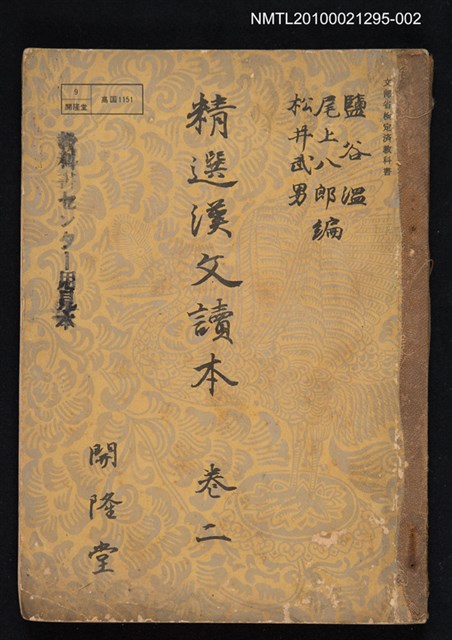 NMTL20100021295-002
文部省検定済教科書
鹽谷溫
尾上八郎編
松井武男
精選漢文讀本 巻二
9
開隆堂
高国1151
教科書センター用見本
開隆堂